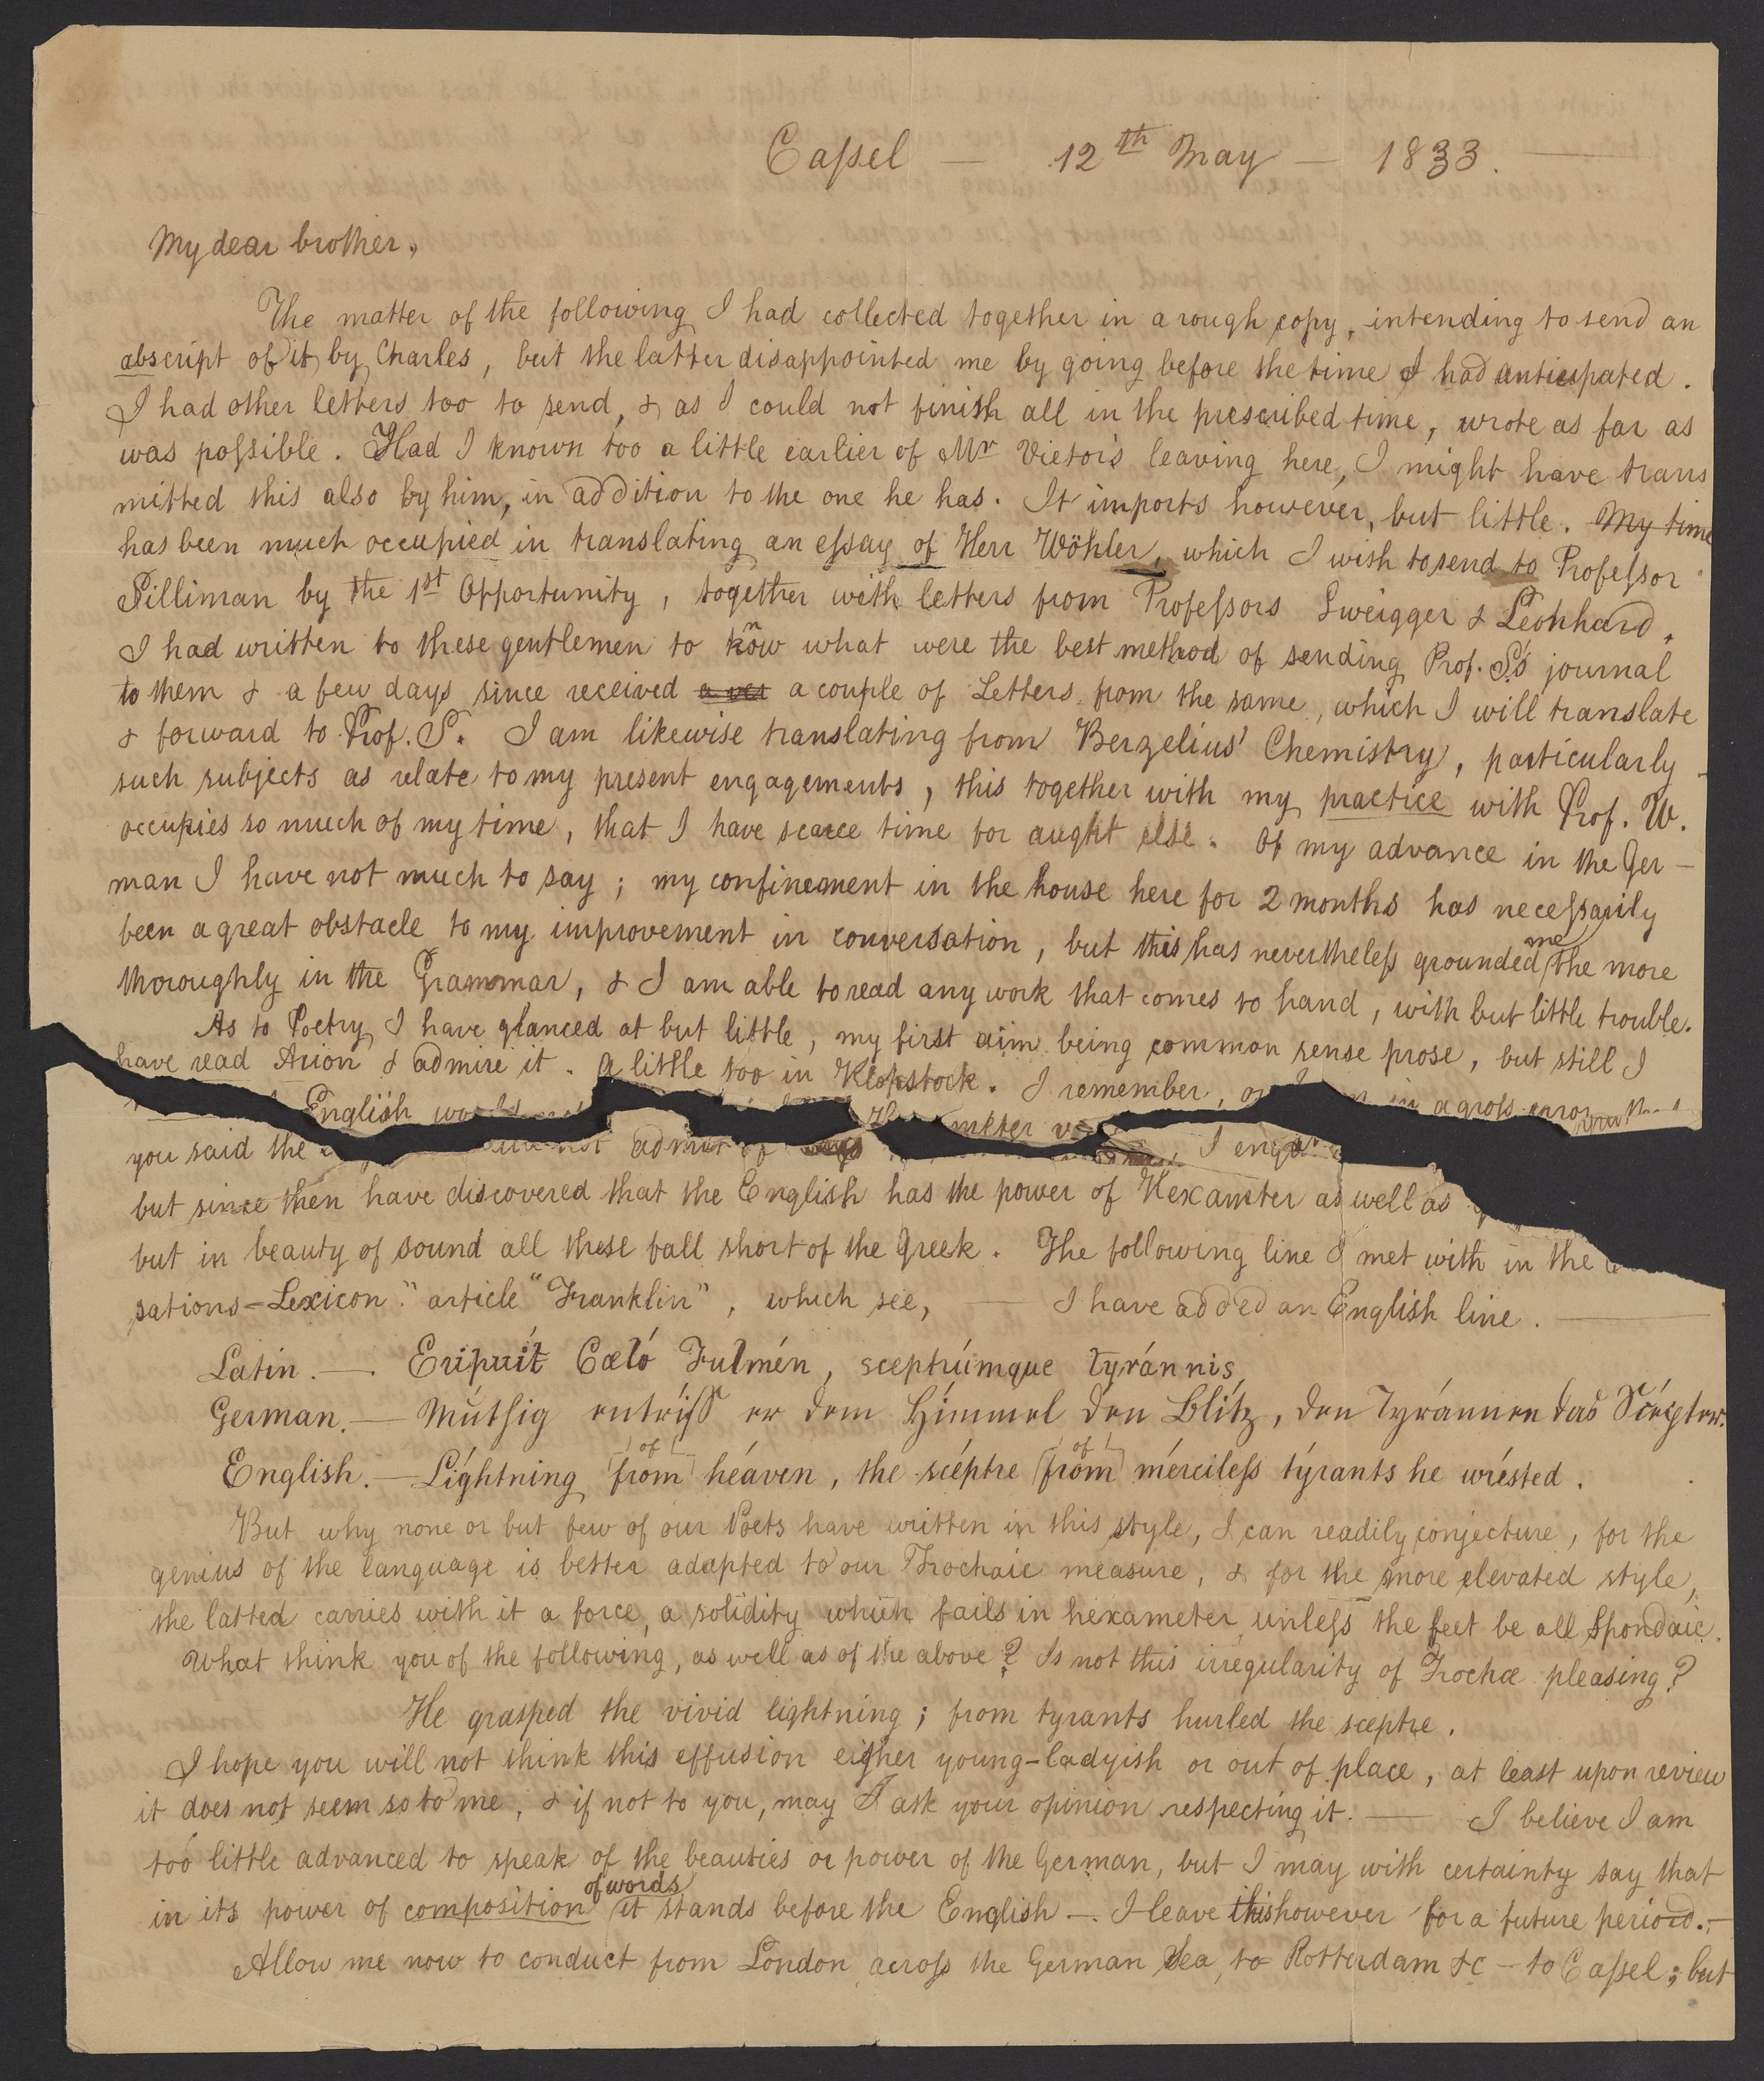 Cassel — 12th May — 1833. —
My dear brother,
The matter of the following I had collected together in a rough copy, intending to send an
abscript of it by Charles, but the latter disappointed me by going before the time I had anticipated.
I had other letters too to send, & as I could not finish all in the prescribed time, wrote as far as
was possible. Had I known too a little earlier of Mr Vietor's leaving here, I might have trans
mitted this also by him, in addition to the one he has. It imports however, but little. My time
has been much occupied in translating an essay of Herr Wöhler, which I wish to send to Professor
Silliman by the 1st Opportunity, together with letters from Professors Sweigger & Leonhard.
I had written to these gentlemen to know what were the best method of sending Prof. S's journal
to them & a few days since received a ver a couple of Letters from the same, which I will translate
& forward to Prof. S. I am likewise translating from Berzelius' Chemistry, particularly
such subjects as relate to my present engagements, this together with my practice with Prof. W.
occupies so much of my time, that I have scarce time for aught else. Of my advance in the Ger-
man I have not much to say; my confinement in the house here for 2 months has necessarily
been a great obstacle to my improvement in conversation, but this has nevertheless grounded me the more
thoroughly in the Grammar, & I am able to read any work that comes to hand, with but little trouble.
As to Poetry I have glanced at but little, my first aim being common sense prose, but still I
have read Arion & admire it. A little too in Klopstock. I remember, or in a gross error
English
you said the not admit of I
but since then have discovered that the English has the power of Hexameter as well as
but in beauty of sound all these fall short of the Greek. The following line I met with in the
sations=Lexicon." article "Franklin", which see, — I have added an English line. —
Latin. — Eripuít Cæló Fulmén, sceptrúmque tyránnis,
German. — Múthig entríſſ er dem Hímmel den Blítz, den Tyránnen das Scépter.
English. — Líghtning from (of) héaven, the scéptre from (of) mércileſs týrants he wrésted.
But why none or but few of our Poets have written in this style, I can readily conjecture, for the
genius of the language is better adapted to our Trochaic measure, & for the more elevated style,
the latted carries with it a force, a solidity which fails in hexameter, unless the feet be all Spondaic.
What think you of the following, as well as of the above? Is not this irregularity of Trochæ pleasing?
He grasped the vivid lightning; from tyrants hurled the sceptre.
I hope you will not think this effusion either young-ladyish or out of place, at least upon review
it does not seem so to me, & if not to you, may I ask your opinion respecting it. — I believe I am
too little advanced to speak of the beauties or power of the German, but I may with certainty say that
in its power of composition of words it stands before the English —. I leave this however for a future period. —
Allow me now to conduct from London across the German Sea, to Rotterdam &c — to Cassel; but